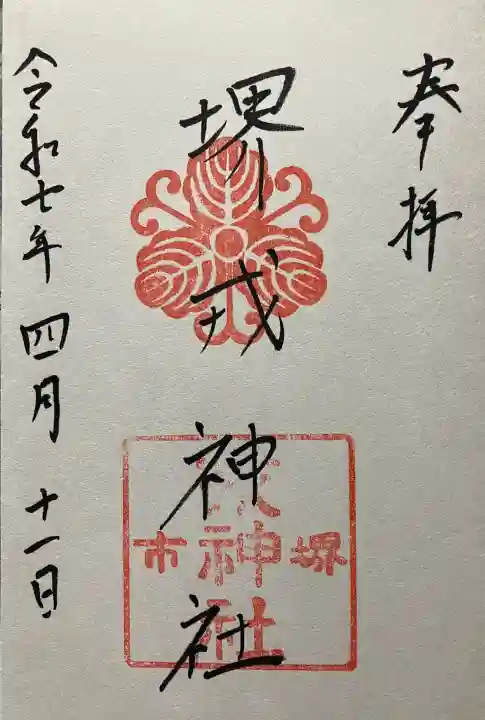 奉拝
堺戎神社
堺
戎神社
市
令和七年四月十一日